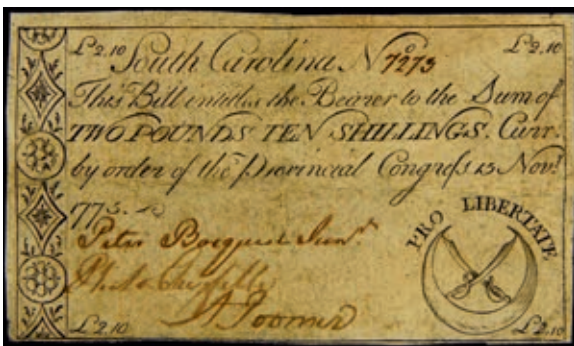 £2.10 South Carolina No 7273 £2.10
This Bill intitles the Bearer to the Sum of
TWO POUNDS TEN SHILLINGS. Curr.
by order of the Provincial Congress 15 Novr.
1775.
Peter Bocquet Junr.
PRO LIBERTATE
£2.10 £2.10